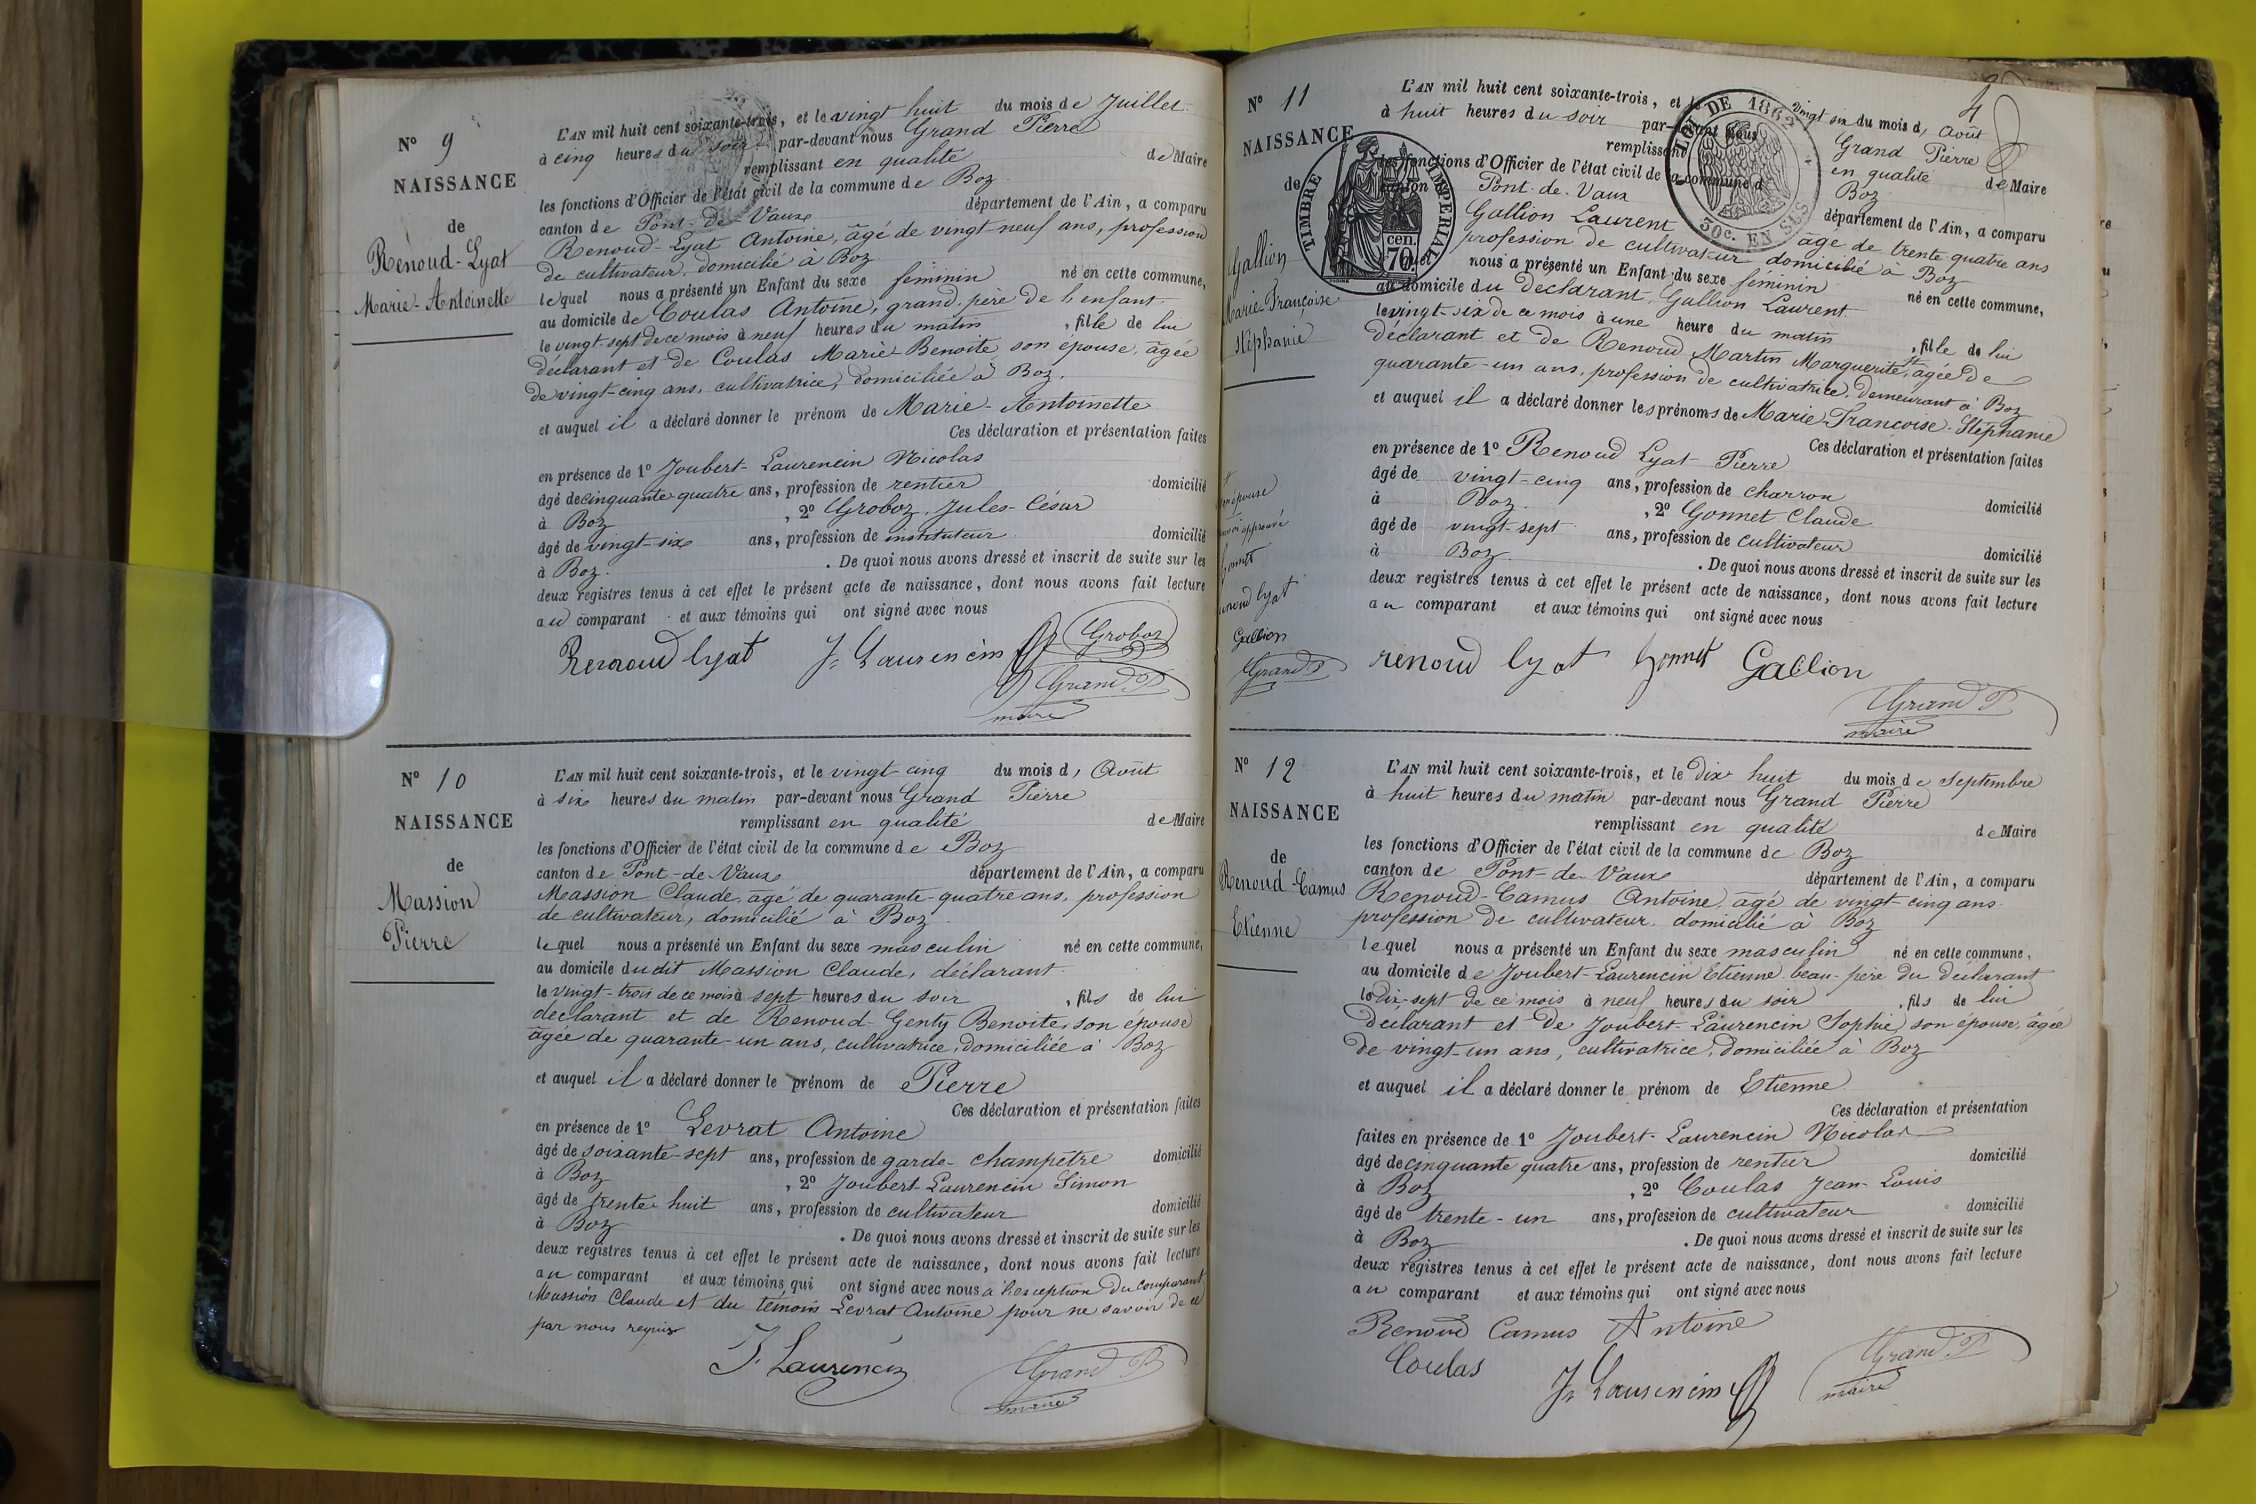 N° 9
NAISSANCE
de
Renoud-Lyat
Marie-Antoinette
L'AN mil huit cent soixante-trois, et le vingt huit du mois de Juillet
à cinq heures du soir par-devant nous Grand Pierre
remplissant en qualité de Maire
les fonctions d'Officier de l'état civil de la commune de Boz
canton de Pont-de-Vaux département de l'Ain, a comparu
Renoud-Lyat Antoine, âgé de vingt-neuf ans, profession
de cultivateur, domicilié à Boz
lequel nous a présenté un Enfant du sexe féminin né en cette commune,
au domicile de Coulas Antoine, grand-père de l'enfant
le vingt-sept de ce mois à neuf heures du matin, fille de lui
déclarant et de Coulas Marie Benoite son épouse, âgée
de vingt-cinq ans, cultivatrice, domiciliée à Boz.
et auquel il a déclaré donner le prénom de Marie-Antoinette
Ces déclaration et présentation faites
en présence de 1° Joubert-Laurencin Nicolas
âgé de cinquante quatre ans, profession de rentier domicilié
à Boz, 2° Groboz, Jules-César
âgé de vingt-six ans, profession de instituteur domicilié
à Boz. De quoi nous avons dressé et inscrit de suite sur les
deux registres tenus à cet effet le présent acte de naissance, dont nous avons fait lecture
au comparant et aux témoins qui ont signé avec nous
Renoud lyat Jn Laurencin Groboz
Grand P
maire
N° 10
NAISSANCE
de
Massion
Pierre
L'AN mil huit cent soixante-trois, et le vingt-cinq du mois d, Août
à six heures du matin par-devant nous Grand Pierre
remplissant en qualité de Maire
les fonctions d'Officier de l'état civil de la commune de Boz
canton de Pont-de-Vaux département de l'Ain, a comparu
Massion Claude, âgé de quarante-quatre ans, profession
de cultivateur, domicilié à Boz
lequel nous a présenté un Enfant du sexe masculin né en cette commune,
au domicile dudit Massion Claude, déclarant
le vingt-trois de ce mois à sept heures du soir, fils de lui
déclarant et de Renoud-Genty Benoite, son épouse
âgée de quarante-un ans, cultivatrice, domiciliée à Boz
et auquel il a déclaré donner le prénom de Pierre
Ces déclaration et présentation faites
en présence de 1° Levrat Antoine
âgé de soixante-sept ans, profession de garde-champêtre domicilié
à Boz, 2° Joubert-Laurencin Simon
âgé de trente-huit ans, profession de cultivateur domicilié
à Boz. De quoi nous avons dressé et inscrit de suite sur les
deux registres tenus à cet effet le présent acte de naissance, dont nous avons fait lecture
au comparant et aux témoins qui ont signé avec nous à l'exception du comparant
Massion Claude et du témoin Levrat Antoine pour ne savoir de ce
par nous requis
J. Laurencin Grand P
maire
4
N° 11
NAISSANCE
de
Gallion
Marie-Françoise
Stéphanie
TIMBRE IMPERIAL
70 cen.
LOI DE 1862
50c. EN SUS
L'AN mil huit cent soixante-trois, et le vingt six du mois d, Août
à huit heures du soir par-devant nous Grand Pierre
remplissant en qualité de Maire
les fonctions d'Officier de l'état civil de la commune d Boz
canton Pont-de-Vaux département de l'Ain, a comparu
Gallion Laurent âgé de trente quatre ans
profession de cultivateur domicilié à Boz
lequel nous a présenté un Enfant du sexe féminin né en cette commune,
au domicile du déclarant, Gallion Laurent
le vingt-six de ce mois à une heure du matin, fille de lui
déclarant et de Renoud Martin Marguerite, âgée de
quarante-un ans, profession de cultivatrice, demeurant à Boz
et auquel il a déclaré donner les prénoms de Marie-Françoise-Stéphanie
Ces déclaration et présentation faites
en présence de 1° Renoud Lyat Pierre
âgé de vingt-cinq ans, profession de charron domicilié
à Boz, 2° Gonnet Claude
âgé de vingt-sept ans, profession de cultivateur domicilié
à Boz. De quoi nous avons dressé et inscrit de suite sur les
deux registres tenus à cet effet le présent acte de naissance, dont nous avons fait lecture
au comparant et aux témoins qui ont signé avec nous
son épouse
approuvé
gonnet
renoud lyat
Gallion
Grand P
renoud lyat gonnet Gallion
Grand P
maire
N° 12
NAISSANCE
de
Renoud-Camus
Etienne
L'AN mil huit cent soixante-trois, et le dix huit du mois de Septembre
à huit heures du matin par-devant nous Grand Pierre
remplissant en qualité de Maire
les fonctions d'Officier de l'état civil de la commune de Boz
canton de Pont-de-Vaux département de l'Ain, a comparu
Renoud-Camus Antoine, âgé de vingt-cinq ans
profession de cultivateur, domicilié à Boz
lequel nous a présenté un Enfant du sexe masculin né en cette commune,
au domicile de Joubert-Laurencin Etienne beau-père du déclarant
le dix-sept de ce mois à neuf heures du soir, fils de lui
déclarant et de Joubert-Laurencin Sophie, son épouse, âgée
de vingt-un ans, cultivatrice, domiciliée à Boz
et auquel il a déclaré donner le prénom de Etienne
Ces déclaration et présentation
faites en présence de 1° Joubert-Laurencin Nicolas
âgé de cinquante quatre ans, profession de rentier domicilié
à Boz, 2° Coulas Jean-Louis
âgé de trente-un ans, profession de cultivateur domicilié
à Boz. De quoi nous avons dressé et inscrit de suite sur les
deux registres tenus à cet effet le présent acte de naissance, dont nous avons fait lecture
au comparant et aux témoins qui ont signé avec nous
Renoud Camus Antoine
Coulas Jn Laurencin Grand P
maire